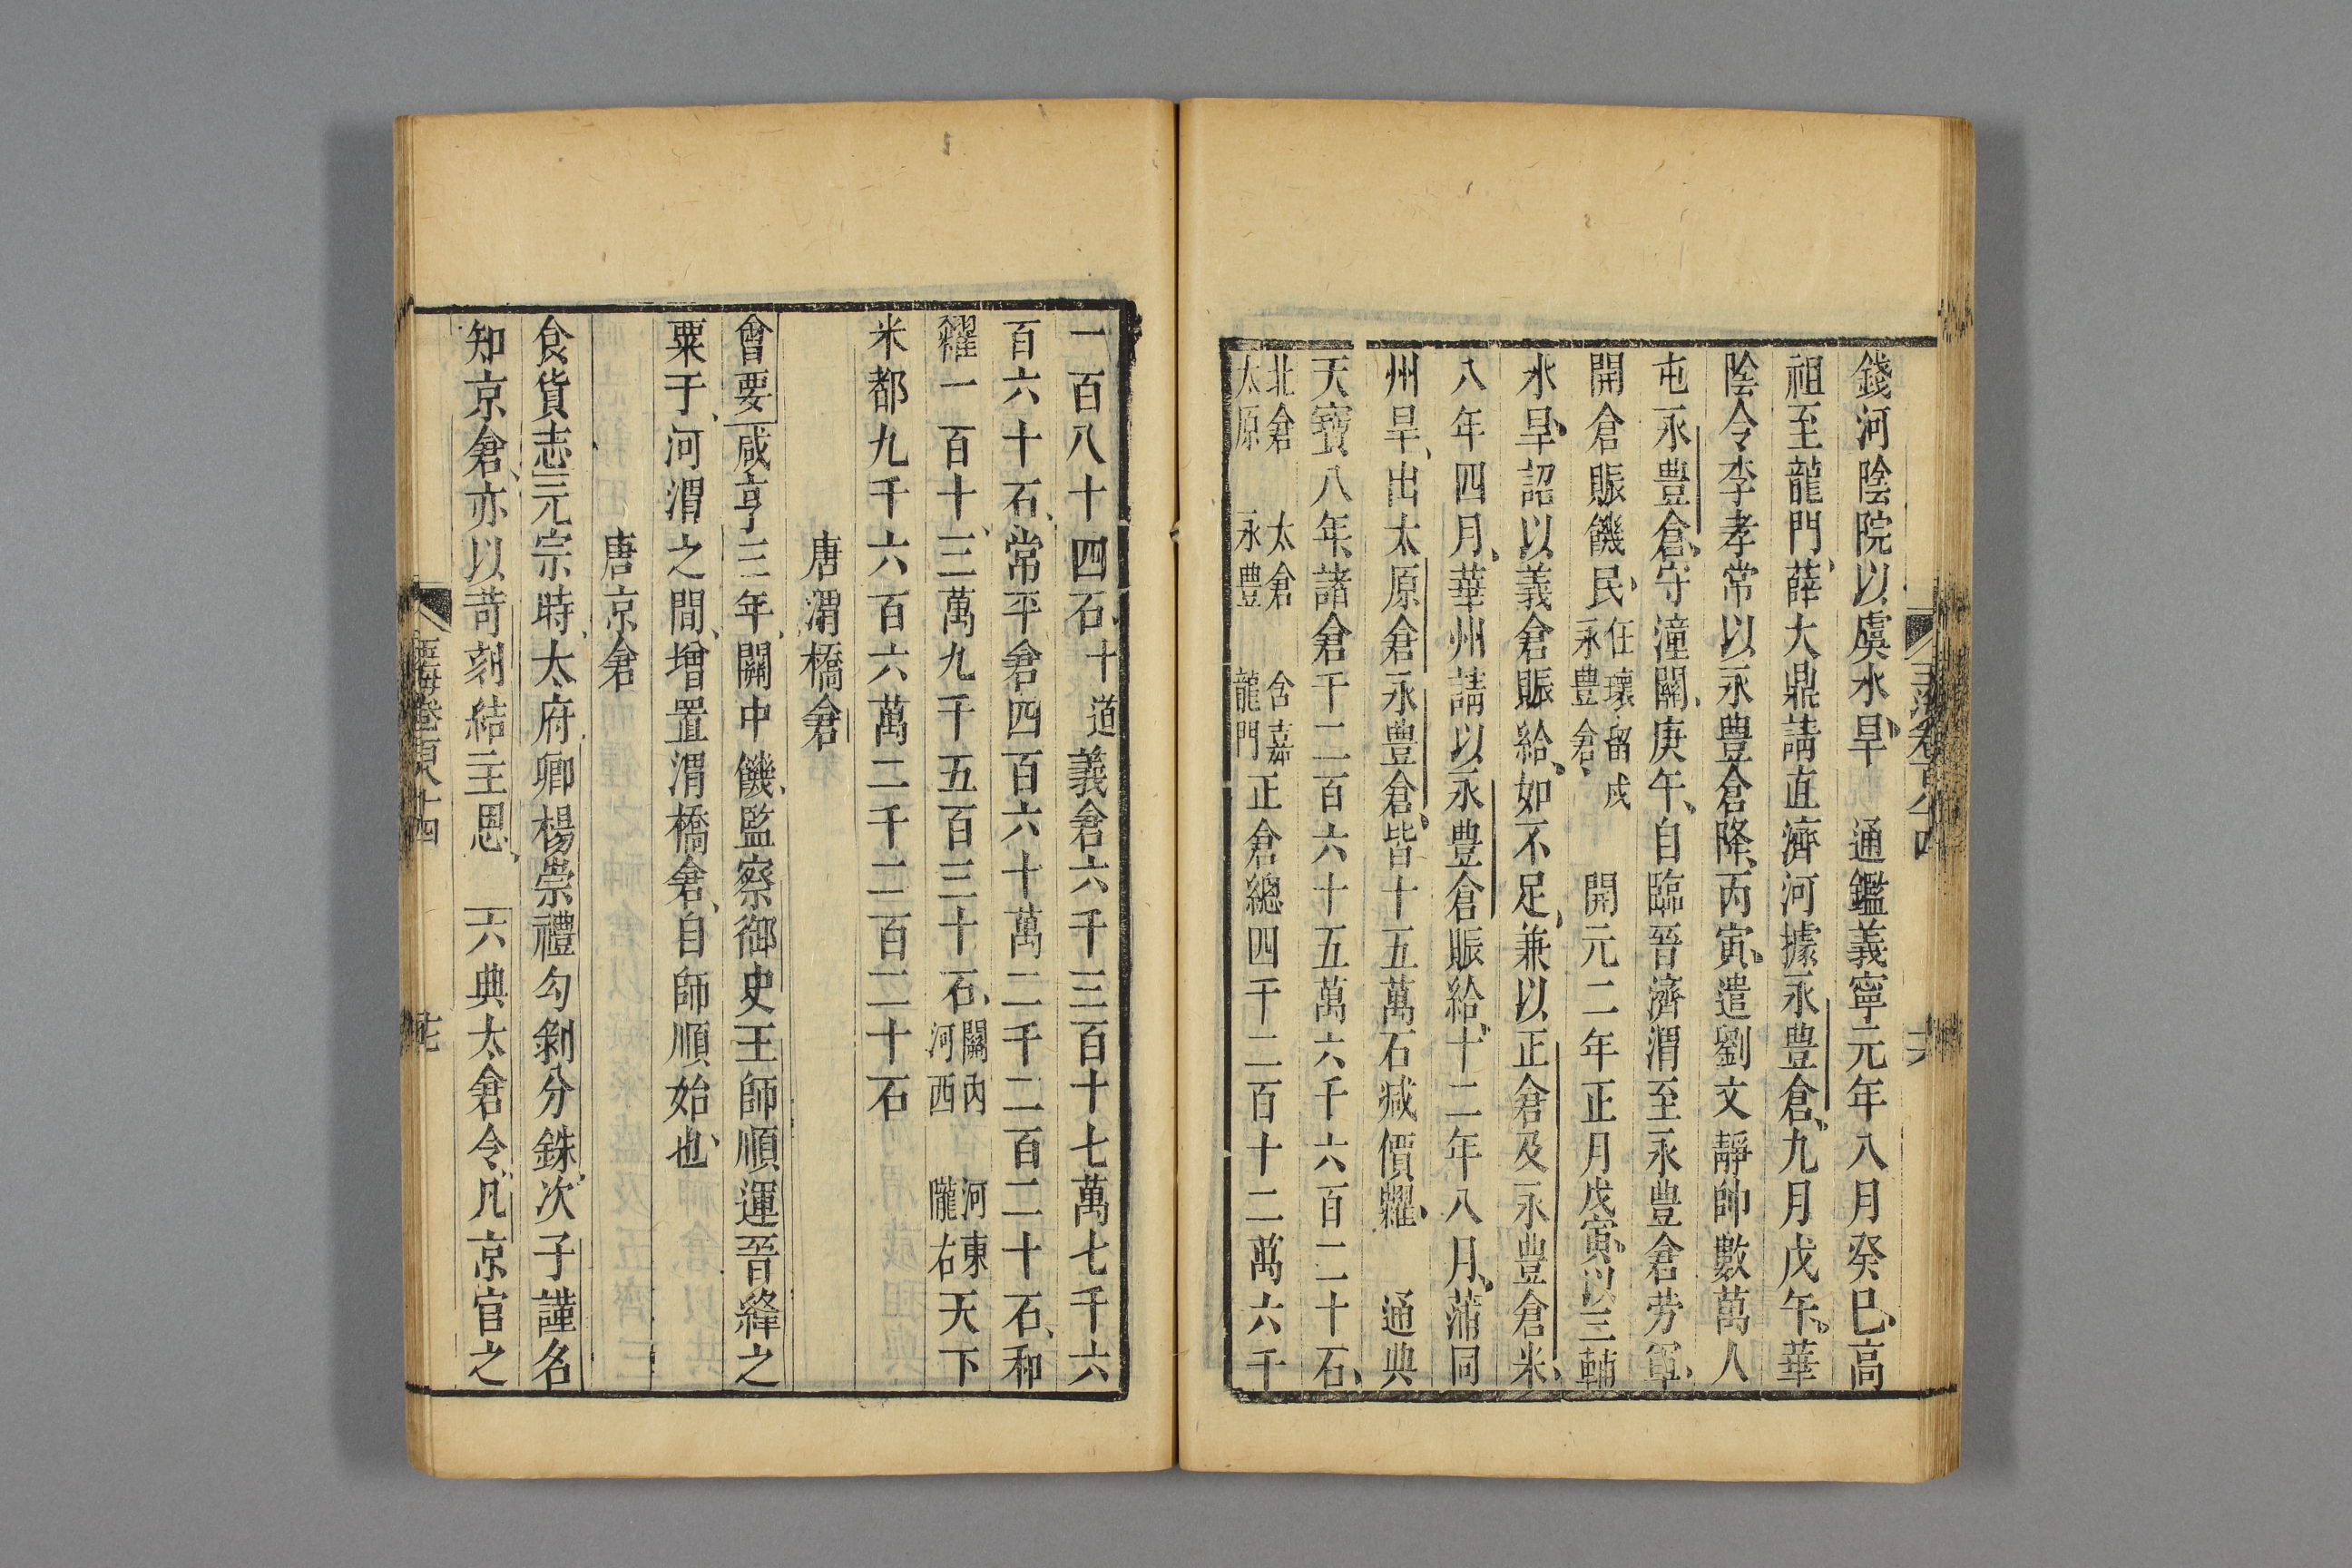 錢河陰院以虞水旱　通鑑義寧元年八月癸巳高
祖至龍門薛大鼎請直濟河據永豊倉九月戊午華
陰令李孝常以永豊倉降丙寅遣劉文靜帥數萬人
屯永豊倉守潼關庚午自臨晉濟渭至永豊倉労軍
開倉賑饑民任瓌留戍永豊倉　開元二年正月戊寅以三輔
水旱詔以義倉賑給如不足兼以正倉及永豊倉米
八年四月華州請以永豊倉賑給十二年八月蒲同
州旱出太原倉永豊倉皆十五萬石減價糶　通典
天寶八年諸倉千二百六十五萬六千六百二十石
北倉　太倉　含嘉
太原　永豊　龍門
正倉總四千二百十二萬六千
玉海卷百八十四
共
一百八十四石十道義倉六千三百十七萬七千六
百六十石常平倉四百六十萬二千二百二十石和
糴一百十三萬九千五百三十石關內　河東
河西　隴右
天下
米都九千六百六萬二千二百二十石
唐渭橋倉
會要咸亨三年關中饑監察御史王師順運晉絳之
粟于河渭之間增置渭橋倉自師順始也
唐京倉
食貨志元宗時太府卿楊崇禮勾剝分銖次子謹名
知京倉亦以苛刻結主恩　六典太倉令凡京官之
玉海卷百八十四